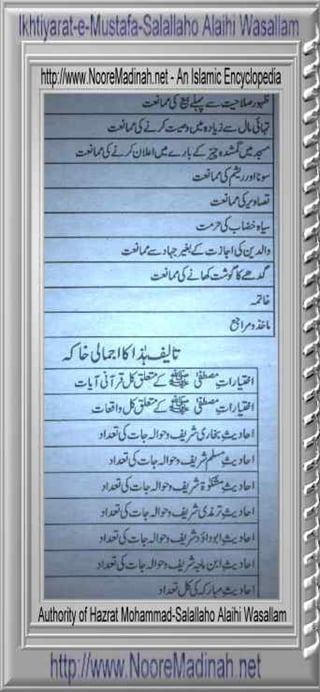 Ikhtiyarat-e-Mustafa-Salallaho Alaihi Wasallam
http://www.NooreMadinah.net - An Islamic Encyclopedia
ظہور صلاحیت سے پہلے بیع کی ممانعت
تہائی مال سے زیادہ میں وصیت کرنے کی ممانعت
مسجد میں گمشدہ چیز کے بارے میں اعلان کرنے کی ممانعت
سونا اور ریشم کی ممانعت
تصاویر کی ممانعت
سیاہ خضاب کی حرمت
والدین کی اجازت کے بغیر جہاد سے ممانعت
گدھے کا گوشت کھانے کی ممانعت
خاتمہ
ماخذ و مراجع
تالیف ہذا کا اجمالی خاکہ
اختیارات مصطفیٰ ﷺ کے متعلق کل قرآنی آیات
اختیارات مصطفیٰ ﷺ کے متعلق کل واقعات
احادیث بخاری شریف و حوالہ جات کی تعداد
احادیث مسلم شریف و حوالہ جات کی تعداد
احادیث مشکوٰۃ شریف و حوالہ جات کی تعداد
احادیث ترمذی شریف و حوالہ جات کی تعداد
احادیث ابوداؤد شریف و حوالہ جات کی تعداد
احادیث ابن ماجہ شریف و حوالہ جات کی تعداد
احادیث مبارکہ کی کل تعداد
Authority of Hazrat Mohammad-Salallaho Alaihi Wasallam
http://www.NooreMadinah.net